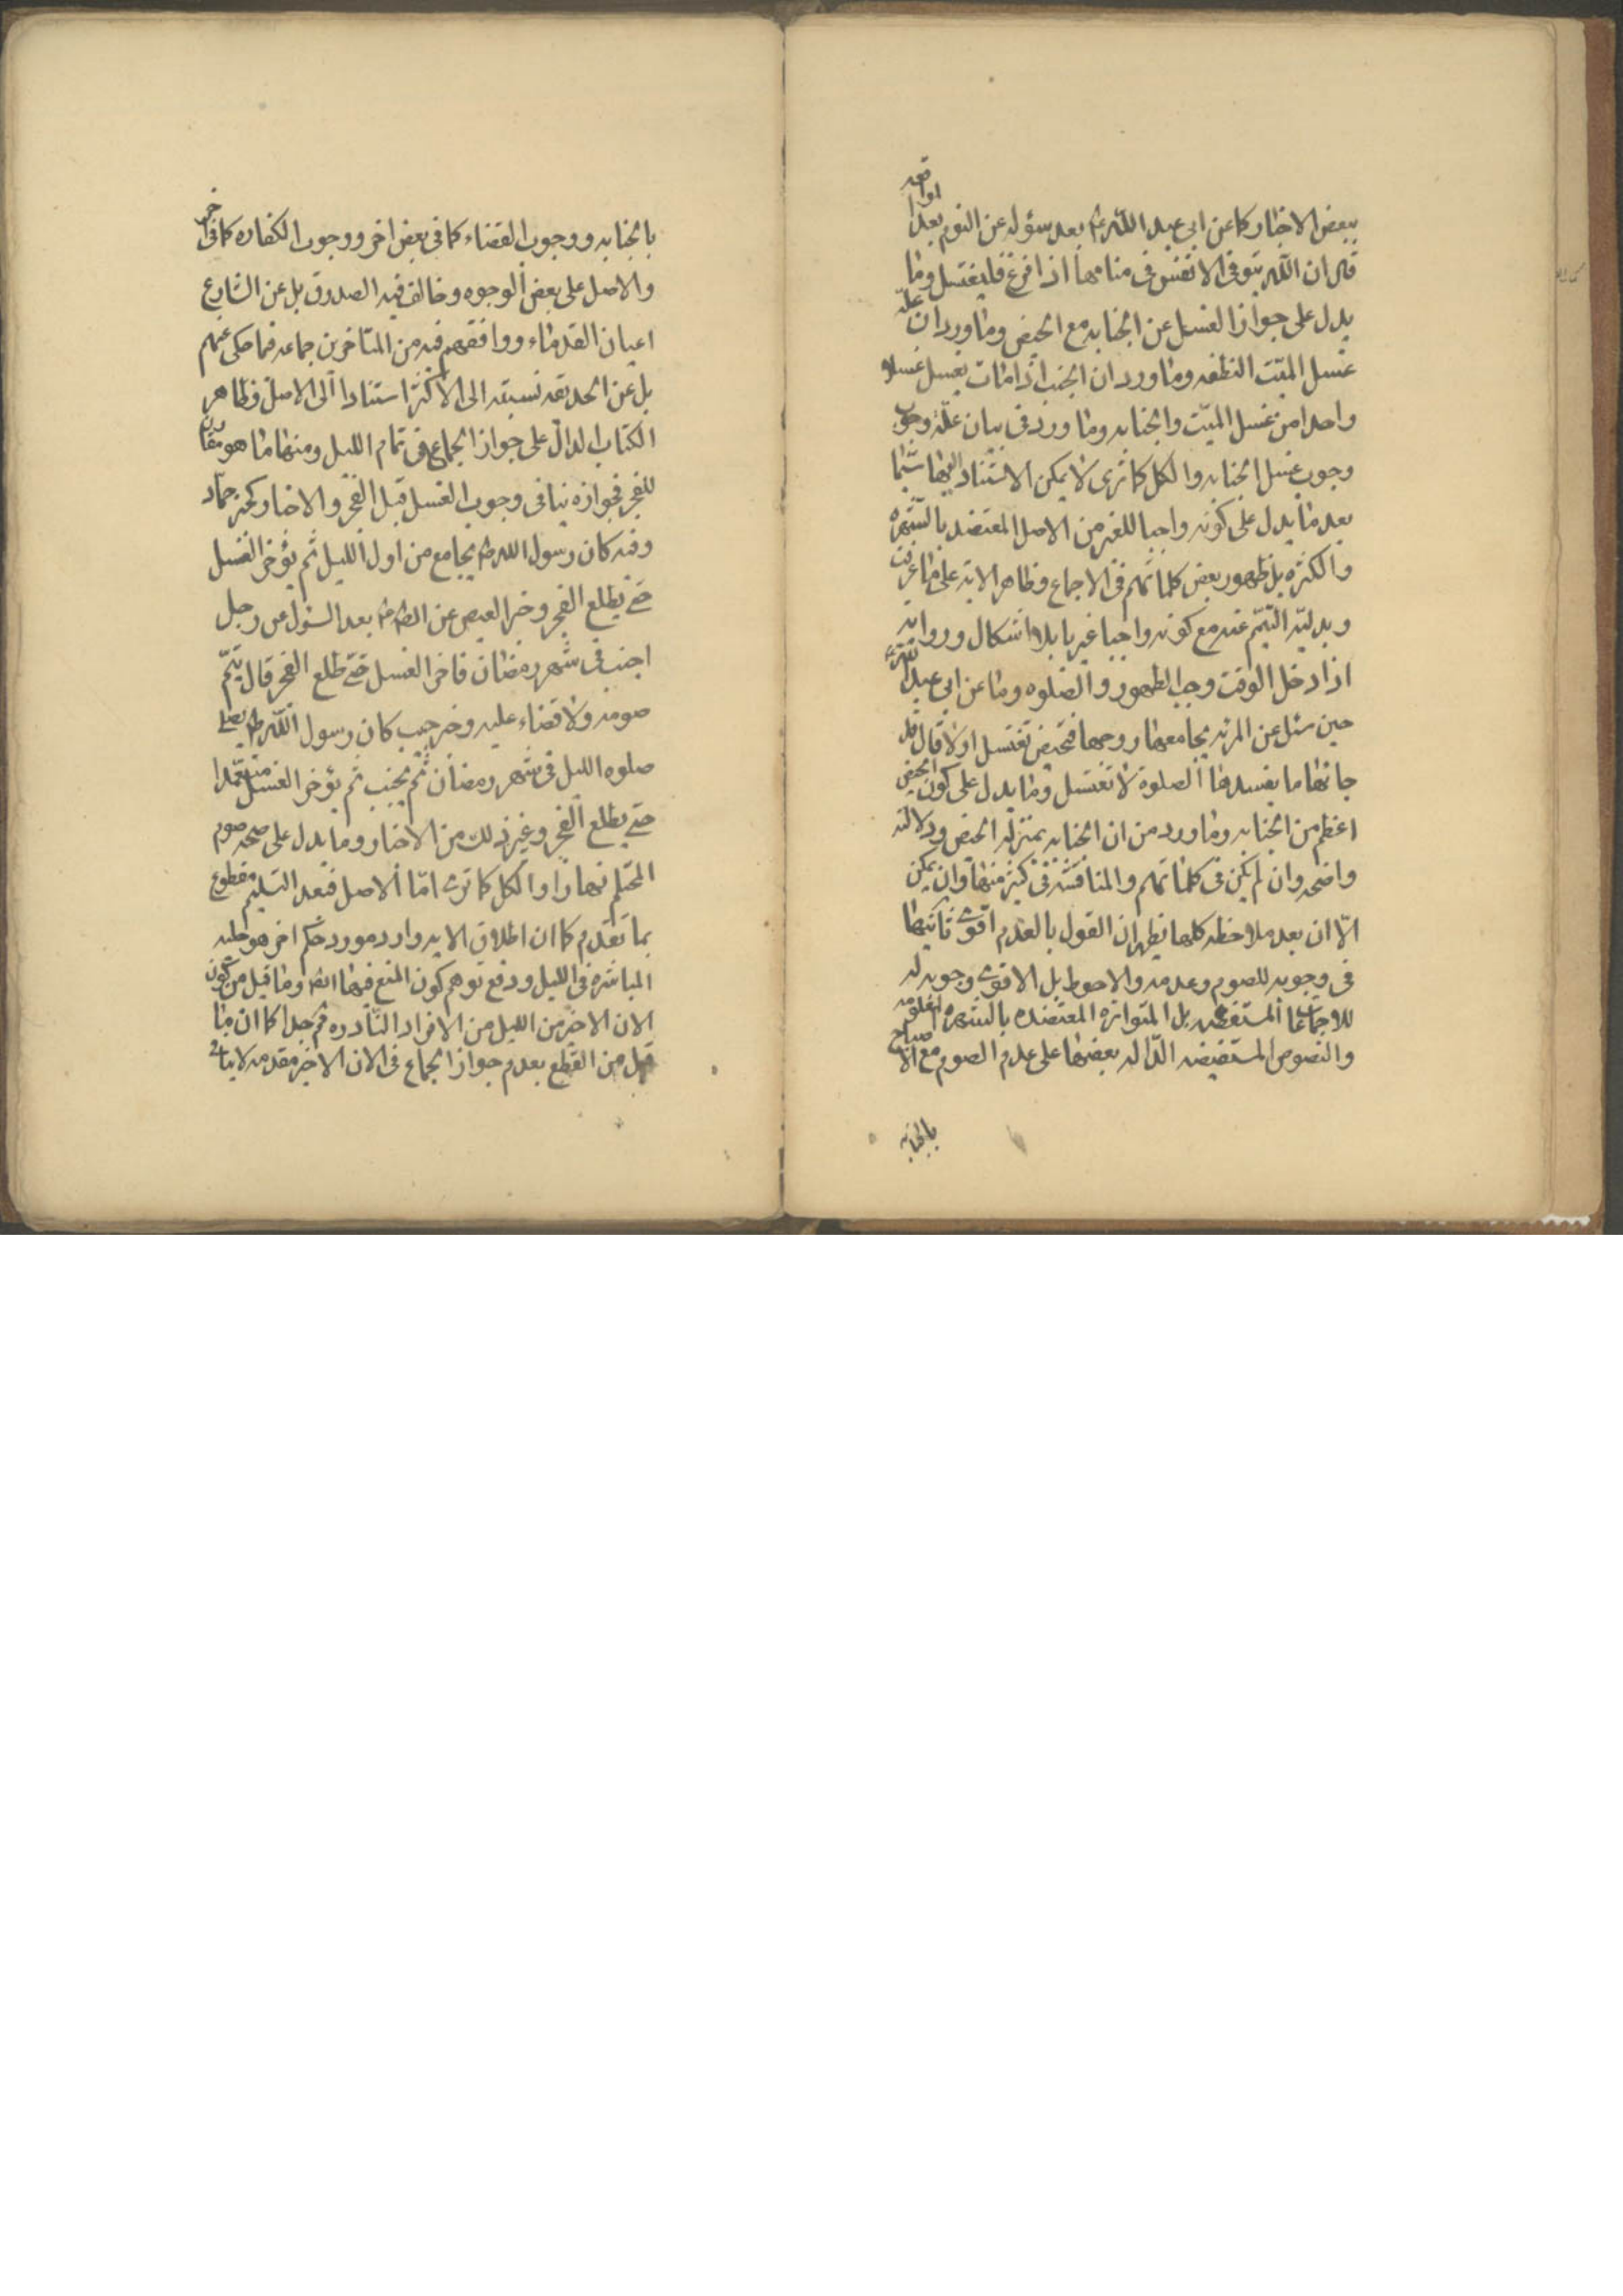 ببعض الاخبار كما عن ابى عبد الله ع بعد سؤله عن النوم بعد المواقعه
قال ان الله يتوفى الانفس فى منامها اذا فرغ فليغتسل وما
يدل على جواز الغسل عن الجنابه مع الحيض وما ورد ان علة
غسل الميّت النطفه وما ورد ان الجنب اذا مات يغسل غسلا
واحدا من غسل الميّت والجنابه وما ورد فى بيان علّة وجوب
وجوب غسل الجنابه والكل كما ترى لا يمكن الاستناد اليها سيّما
بعد ما يدل على كونه واجبا للغير من الاصل المعتضد بالشهره
والكثره بل ظهور بعض كلماتهم فى الاجماع وظاهر الايه على ما عرفت
وبدليّه التيمّم عنه مع كونه واجبا غيريا بلا اشكال وروايه
اذا دخل الوقت وجب الطهور والصلوه وما عن ابى عبد الله ع
حين سئل عن المرئه يجامعها زوجها فتحيض تغتسل او لا قال قد
جائها ما يفسدها الصلوة لا تغتسل وما يدل على كون الحيض
اعظم من الجنابه وما ورد من ان الجنابه بمنزله الحيض ودلالته
واضحه وان لم يكن فى كلماتهم والمناقشه فى كثير منها وان يمكن
الّا ان بعد ملاحظه كلها يظهر ان القول بالعدم اقوى ثانيها
فى وجوبه للصوم وعدمه والاحوط بل الاقوى وجوبه له
للاجماعات المستفيضه بل المتواتره المعتضده بالشهره المحققه
والنصوص المستفيضه الدّاله بعضها على عدم الصوم مع الاصباح
بالجنابه
بالجنابه ووجوب القضاء كما فى بعض اخر ووجوب الكفاره كما فى اخر
والاصل على بعض الوجوه وخالف فيه الصدوق بل عن الشارع
اعيان القدماء ووافقهم فيه من المتاخرين جماعه فيما حكى عنهم
بل عن الحديقه نسبته الى الاكثر استنادا الى الاصل وظاهر
الكتاب الدالّ على جواز الجماع فى تمام الليل ومنها ما هو مقارن
للفجر فجوازه ينافى وجوب الغسل قبل الفجر والاخبار كخبر حمّاد
وفيه كان رسول الله ص يجامع من اول الليل ثم يؤخر الغسل
حتى يطلع الفجر وخبر العيص عن الصادق ع بعد السؤل عن رجل
اجنب فى شهر رمضان فاخر الغسل حتى طلع الفجر قال يتمّ
صومه ولا قضاء عليه وخبر حبيب كان رسول الله ص يصلى
صلوه الليل فى شهر رمضان ثم يجنب ثم يؤخر الغسل متعمّدا
حتى يطلع الفجر وغير ذلك من الاخبار وما يدل على صحه صوم
المحتلم نهارا والكل كما ترى امّا الاصل فبعد التسليم مقطوع
بما تقدم كما ان اطلاق الايه وارد مورد حكم اخر هو حليه
المباشره فى الليل ودفع توهم كون المنع فيها ايضا وما قيل من كون
الان الاخير من الليل من الافراد النّادره ثم جدا كما ان ما
قيل من القطع بعدم جواز الجماع فى الان الاخير مقدمه